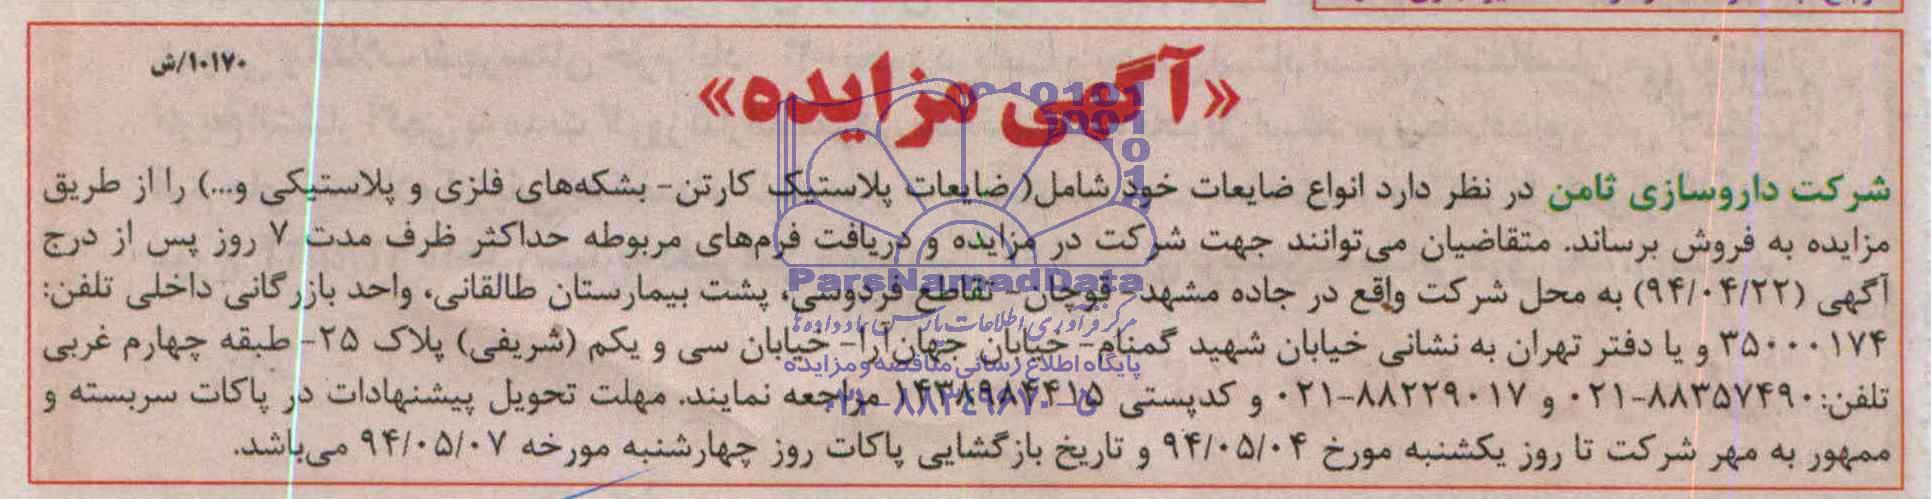 ۱۰۱۷۰/ش
«آگهی مزایده»
شرکت داروسازی ثامن در نظر دارد انواع ضایعات خود شامل( ضایعات پلاستیک کارتن- بشکه‌های فلزی و پلاستیکی و...) را از طریق
مزایده به فروش برساند. متقاضیان می‌توانند جهت شرکت در مزایده و دریافت فرم‌های مربوطه حداکثر ظرف مدت ۷ روز پس از درج
آگهی (۹۴/۰۴/۲۲) به محل شرکت واقع در جاده مشهد- قوچان- تقاطع فردوسی، پشت بیمارستان طالقانی، واحد بازرگانی داخلی تلفن:
۳۵۰۰۰۱۷۴ و یا دفتر تهران به نشانی خیابان شهید گمنام- خیابان جهان‌آرا- خیابان سی و یکم (شریفی) پلاک ۲۵- طبقه چهارم غربی
تلفن: ۸۸۳۵۷۴۹۰-۰۲۱ و ۸۸۲۲۹۰۱۷-۰۲۱ و کدپستی ۱۴۳۸۹۸۴۴۱۵ مراجعه نمایند. مهلت تحویل پیشنهادات در پاکات سربسته و
ممهور به مهر شرکت تا روز یکشنبه مورخ ۹۴/۰۵/۰۴ و تاریخ بازگشایی پاکات روز چهارشنبه مورخه ۹۴/۰۵/۰۷ می‌باشد.
ParsNamadData
مرکز فرآوری اطلاعات پارس نماد داده‌ها
پایگاه اطلاع رسانی مناقصه و مزایده